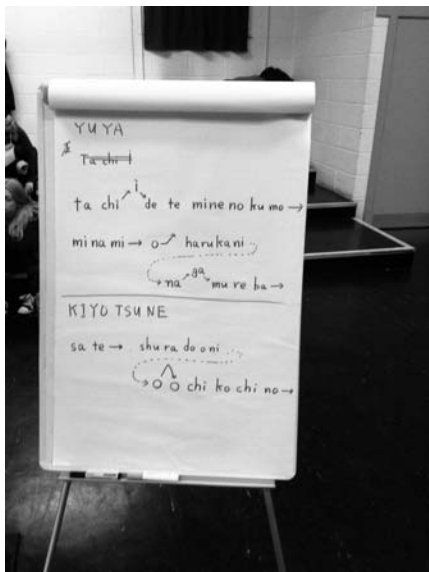 YUYA
Ta chi i
i
ta chi de te mine no ku mo →
mi na mi → o harukani
ga
na mu re ba →
KIYOTSUNE
sa te → shu ra do o ni
o o chi ko chi no →